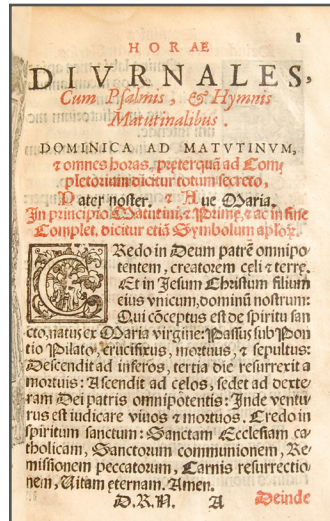 1
HORAE
DIVRNALES,
Cum Psalmis, & Hymnis
Matutinalibus.
DOMINICA AD MATVTINVM,
⁊ omnes horas, preterquā ad Com⸗
pletorium dicitur totum secreto,
Pater noster. ⁊ Aue Maria.
In principio Matutini, ⁊ Prime, ⁊ ac in fine
Complet. dicitur etiā Symbolum aplox.
CRedo in Deum patrē omnipo⸗
tentem, creatorem celi ⁊ terre.
Et in Jesum Christum filium
eius vnicum, dominū nostrum:
Qui cōceptus est de spiritu san
cto, natus ex Maria virgine: Passus sub Pon
tio Pilato, crucifixus, mortuus, ⁊ sepultus:
Descendit ad inferos, tertia die resurrexit a
mortuis: Ascendit ad celos, sedet ad dexte⸗
ram Dei patris omnipotentis: Inde ventu⸗
rus est iudicare viuos ⁊ mortuos. Credo in
spiritum sanctum: Sanctam Ecclesiam ca⸗
tholicam, Sanctorum communionem, Re⸗
missionem peccatorum, Carnis resurrectio⸗
nem, Vitam eternam. Amen.
D.R.N. A Deinde